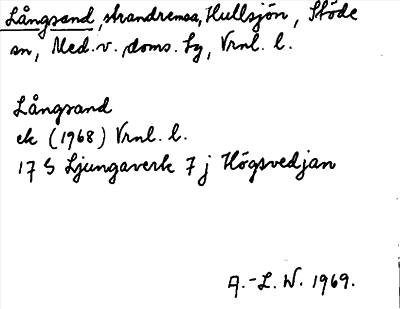 Långsand, strandremsa, Hullsjön, Stöde
sn, Med. v. doms. tg, Vrnl. l.
Långsand
ek (1968) Vrnl. l.
17 G Ljungaverk 7 j Högsvedjan
A.-L. W. 1969.